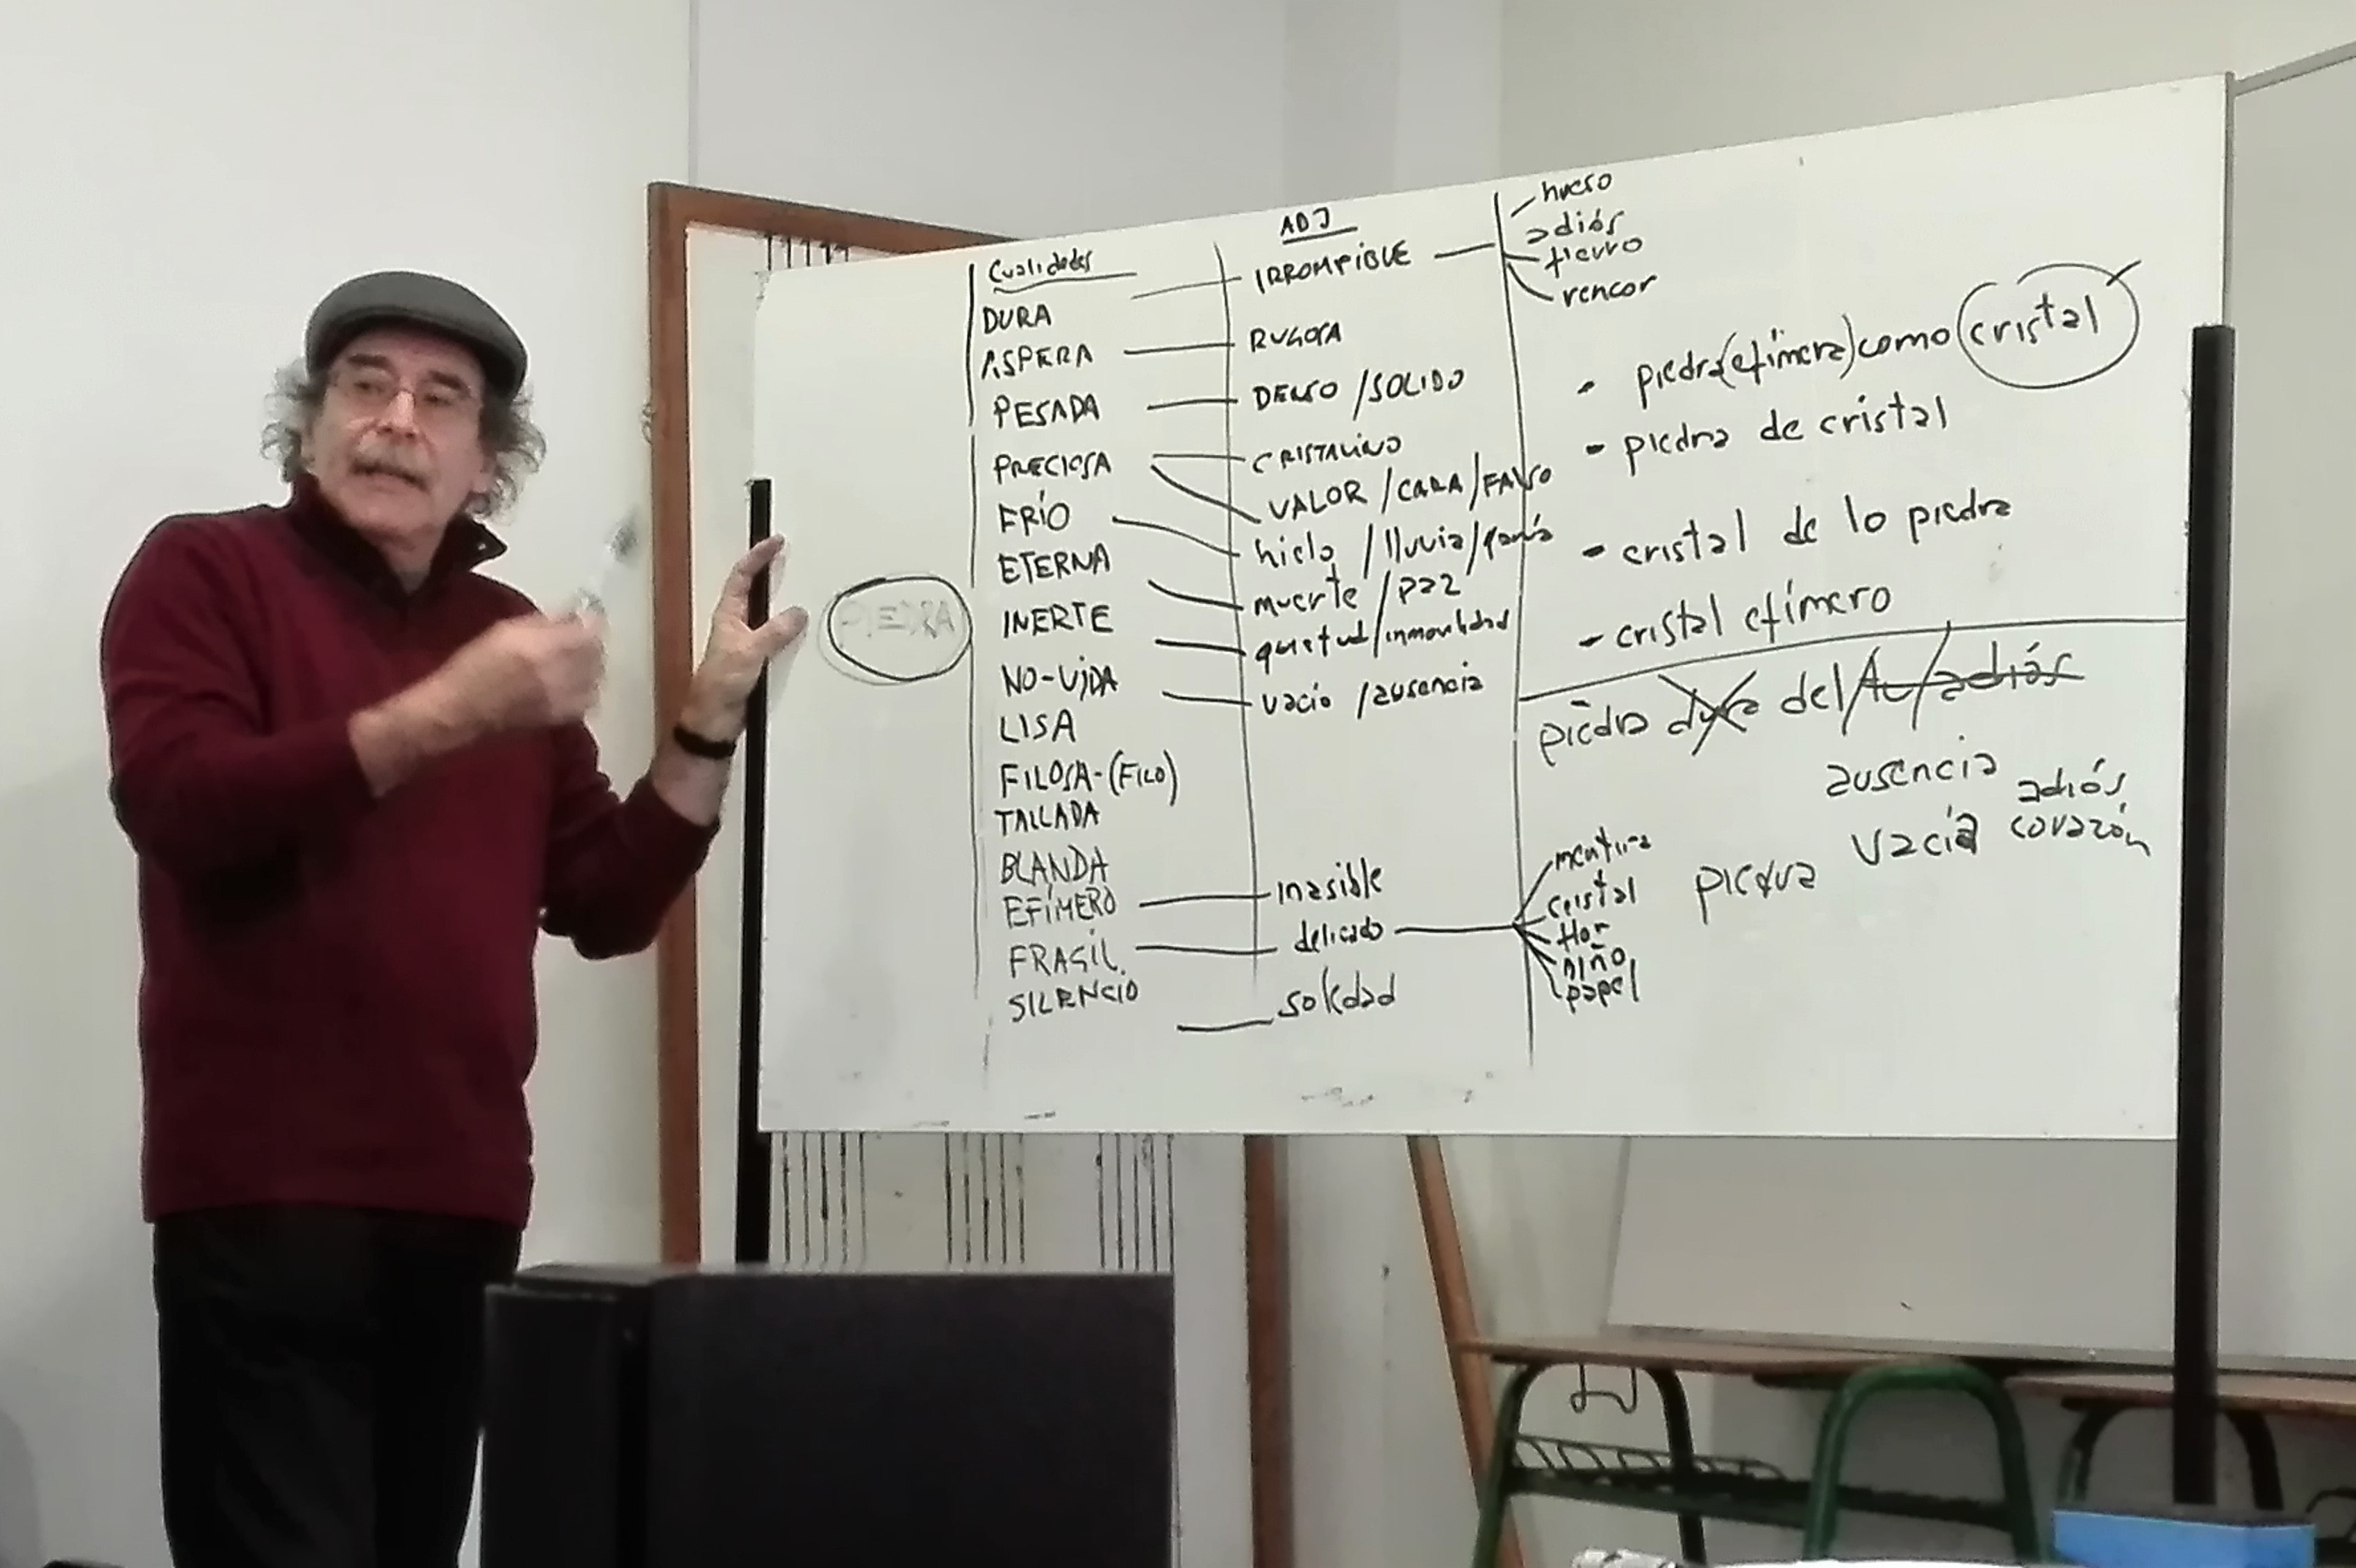 PIEDRA
Cualidades
DURA
ASPERA
PESADA
PRECIOSA
FRÍO
ETERNA
INERTE
NO-VIDA
LISA
FILOSA-(FILO)
TALLADA
BLANDA
EFÍMERO
FRAGIL.
SILENCIO
ADJ
IRROMPIBLE
RUGOSA
DENSO /SOLIDO
CRISTALINO
VALOR /CARA/FALSO
hielo /lluvia/
muerte /paz
quietud/inmovilidad
vacio /ausencia
inasible
delicado
soledad
hueso
adiós
fierro
rencor
mentira
cristal
flor
niño
papel
- piedra(efímera)como cristal
- piedra de cristal
- cristal de lo piedra
- cristal efímero
piedra dura del/ /adiós
ausencia adiós
piedra vacía corazón